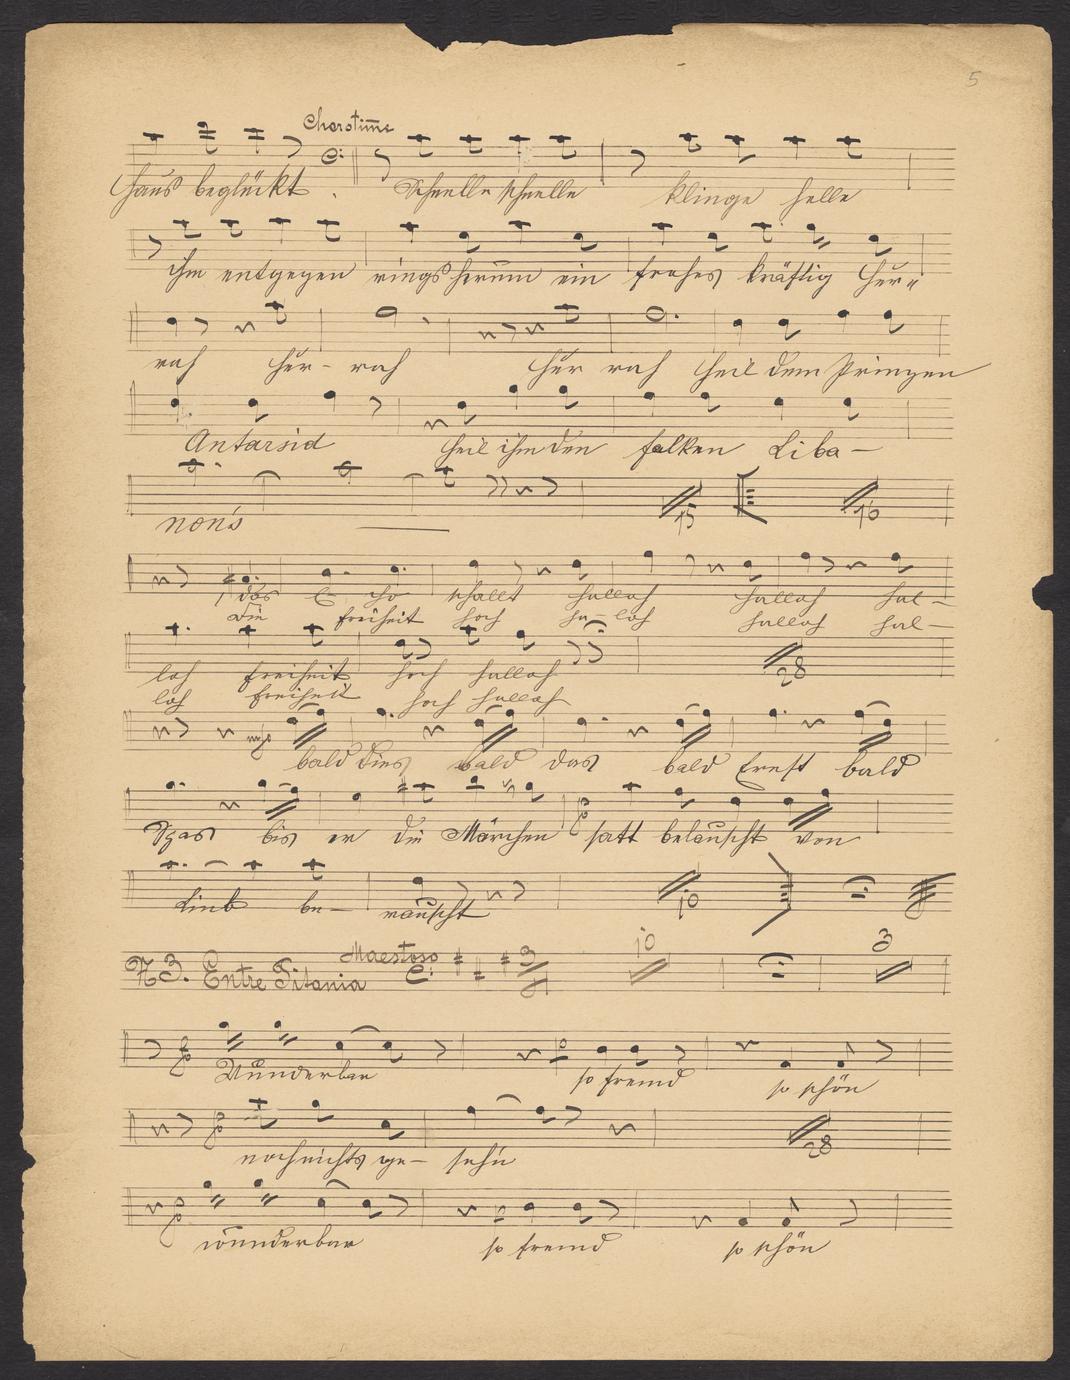 5
Chorstime
Haus beglückt. Schnelle schnelle klinge helle
ihm entgegen rings herum ein frohes kräftig Hur=
rah Hur- rah Hur rah Heil dem Prinzen
Antarsid Heil ihm den falken Liba-
non's
15 16
das E- cho schallt halloh halloh hal-
Die freiheit hoch ha-loh halloh hal-
loh freiheit hoch halloh 28
loh freiheit hoch halloh
bald dies bald das bald Ernst bald
Spas bis er die Märchen satt belauscht von
Lieb be- rauscht
10
N 3. Entre Titania Maestoso 3 10 3
Wunderbar so fremd so schön
noch nichts ge- seh'n 28
wunderbar so fremd so schön